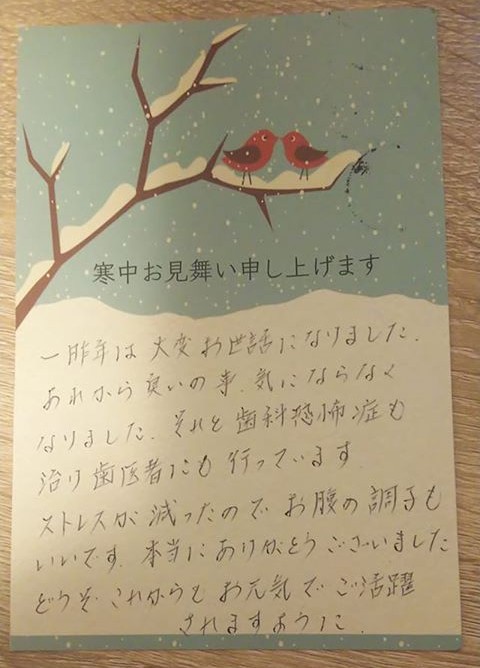 寒中お見舞い申し上げます
一昨年は 大変お世話になりました.
あれから 臭いの事.気にならなく
なりました.それと歯科恐怖症も
治り歯医者にも 行っています
ストレスが 減ったので お腹の調子も
いいです.本当にありがとうございました
どうぞ.これからも お元気で ご活躍
されますように.